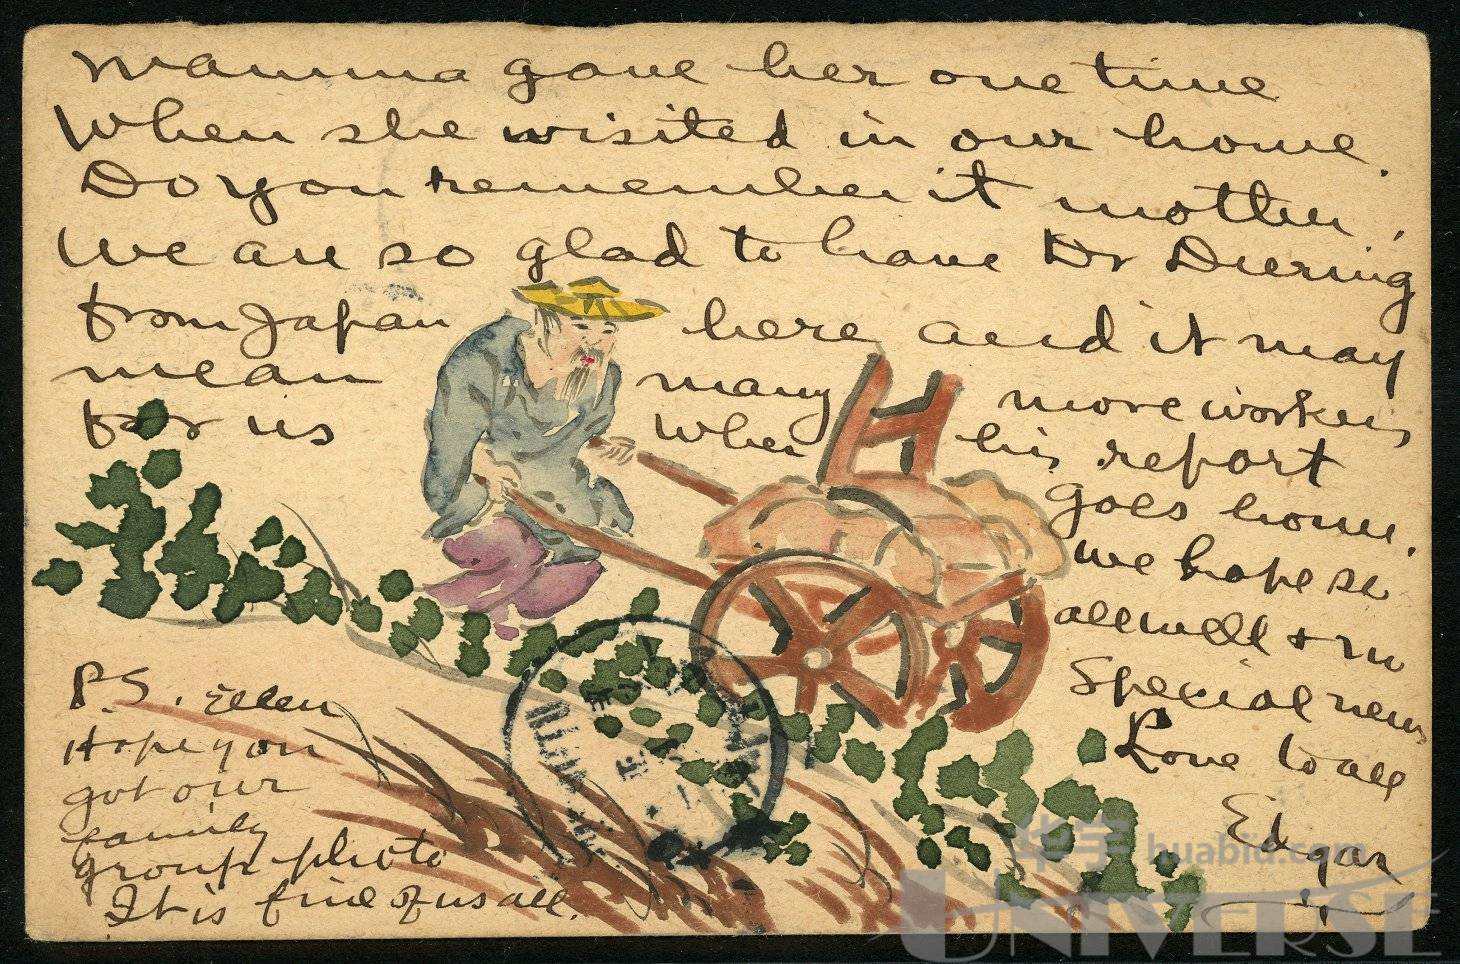 Mamma gave her one time
When she visited in our home.
Do you remember it mother.
We are so glad to have Dr Deering
from Japan here and it may
mean many more workers
for us When his report
goes home.
we hope se
all well & no
Special news
Love to all
Edgar
P.S. Ellen
Hope you
got our
family
group photo
It is fine of us all.
华宇 huabid.com
UNIVERSE